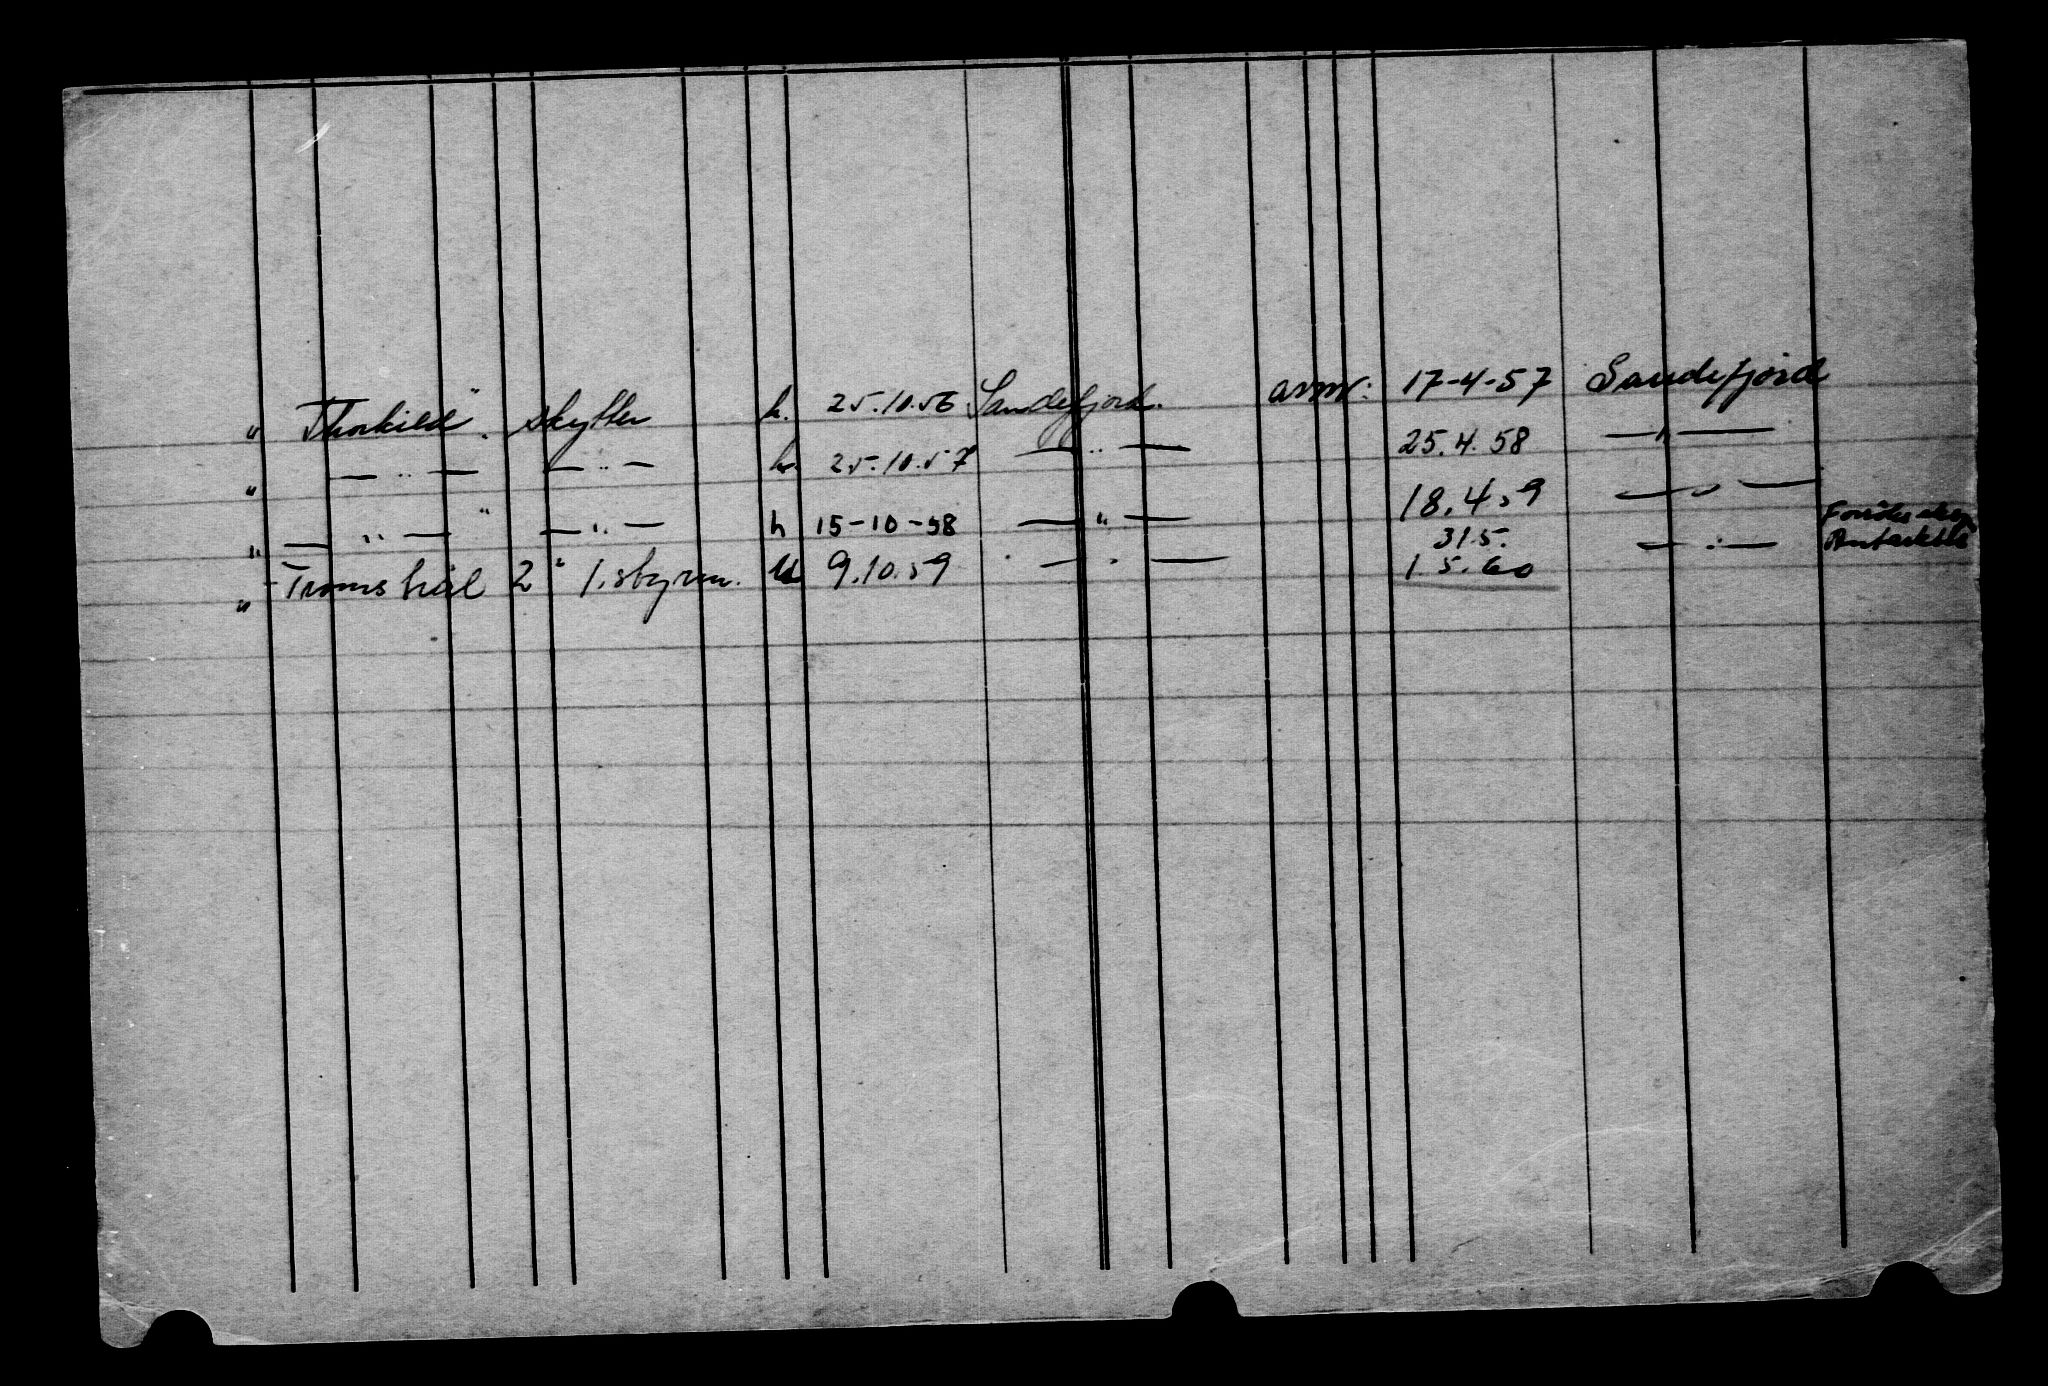 " Thorkild". skytter h. 25.10.56 Sandefjord. avm: 17-4-57 Sandefjord
" — " — — " — h. 25.10.57 — " — 25.4.58 — " —
" — " — " — " — h 15-10-58 — " — 18.4.59 — " —
" Tromshval 2" 1. styrm. U 9.10.59 — " — 31.5. — " —
1.5.60